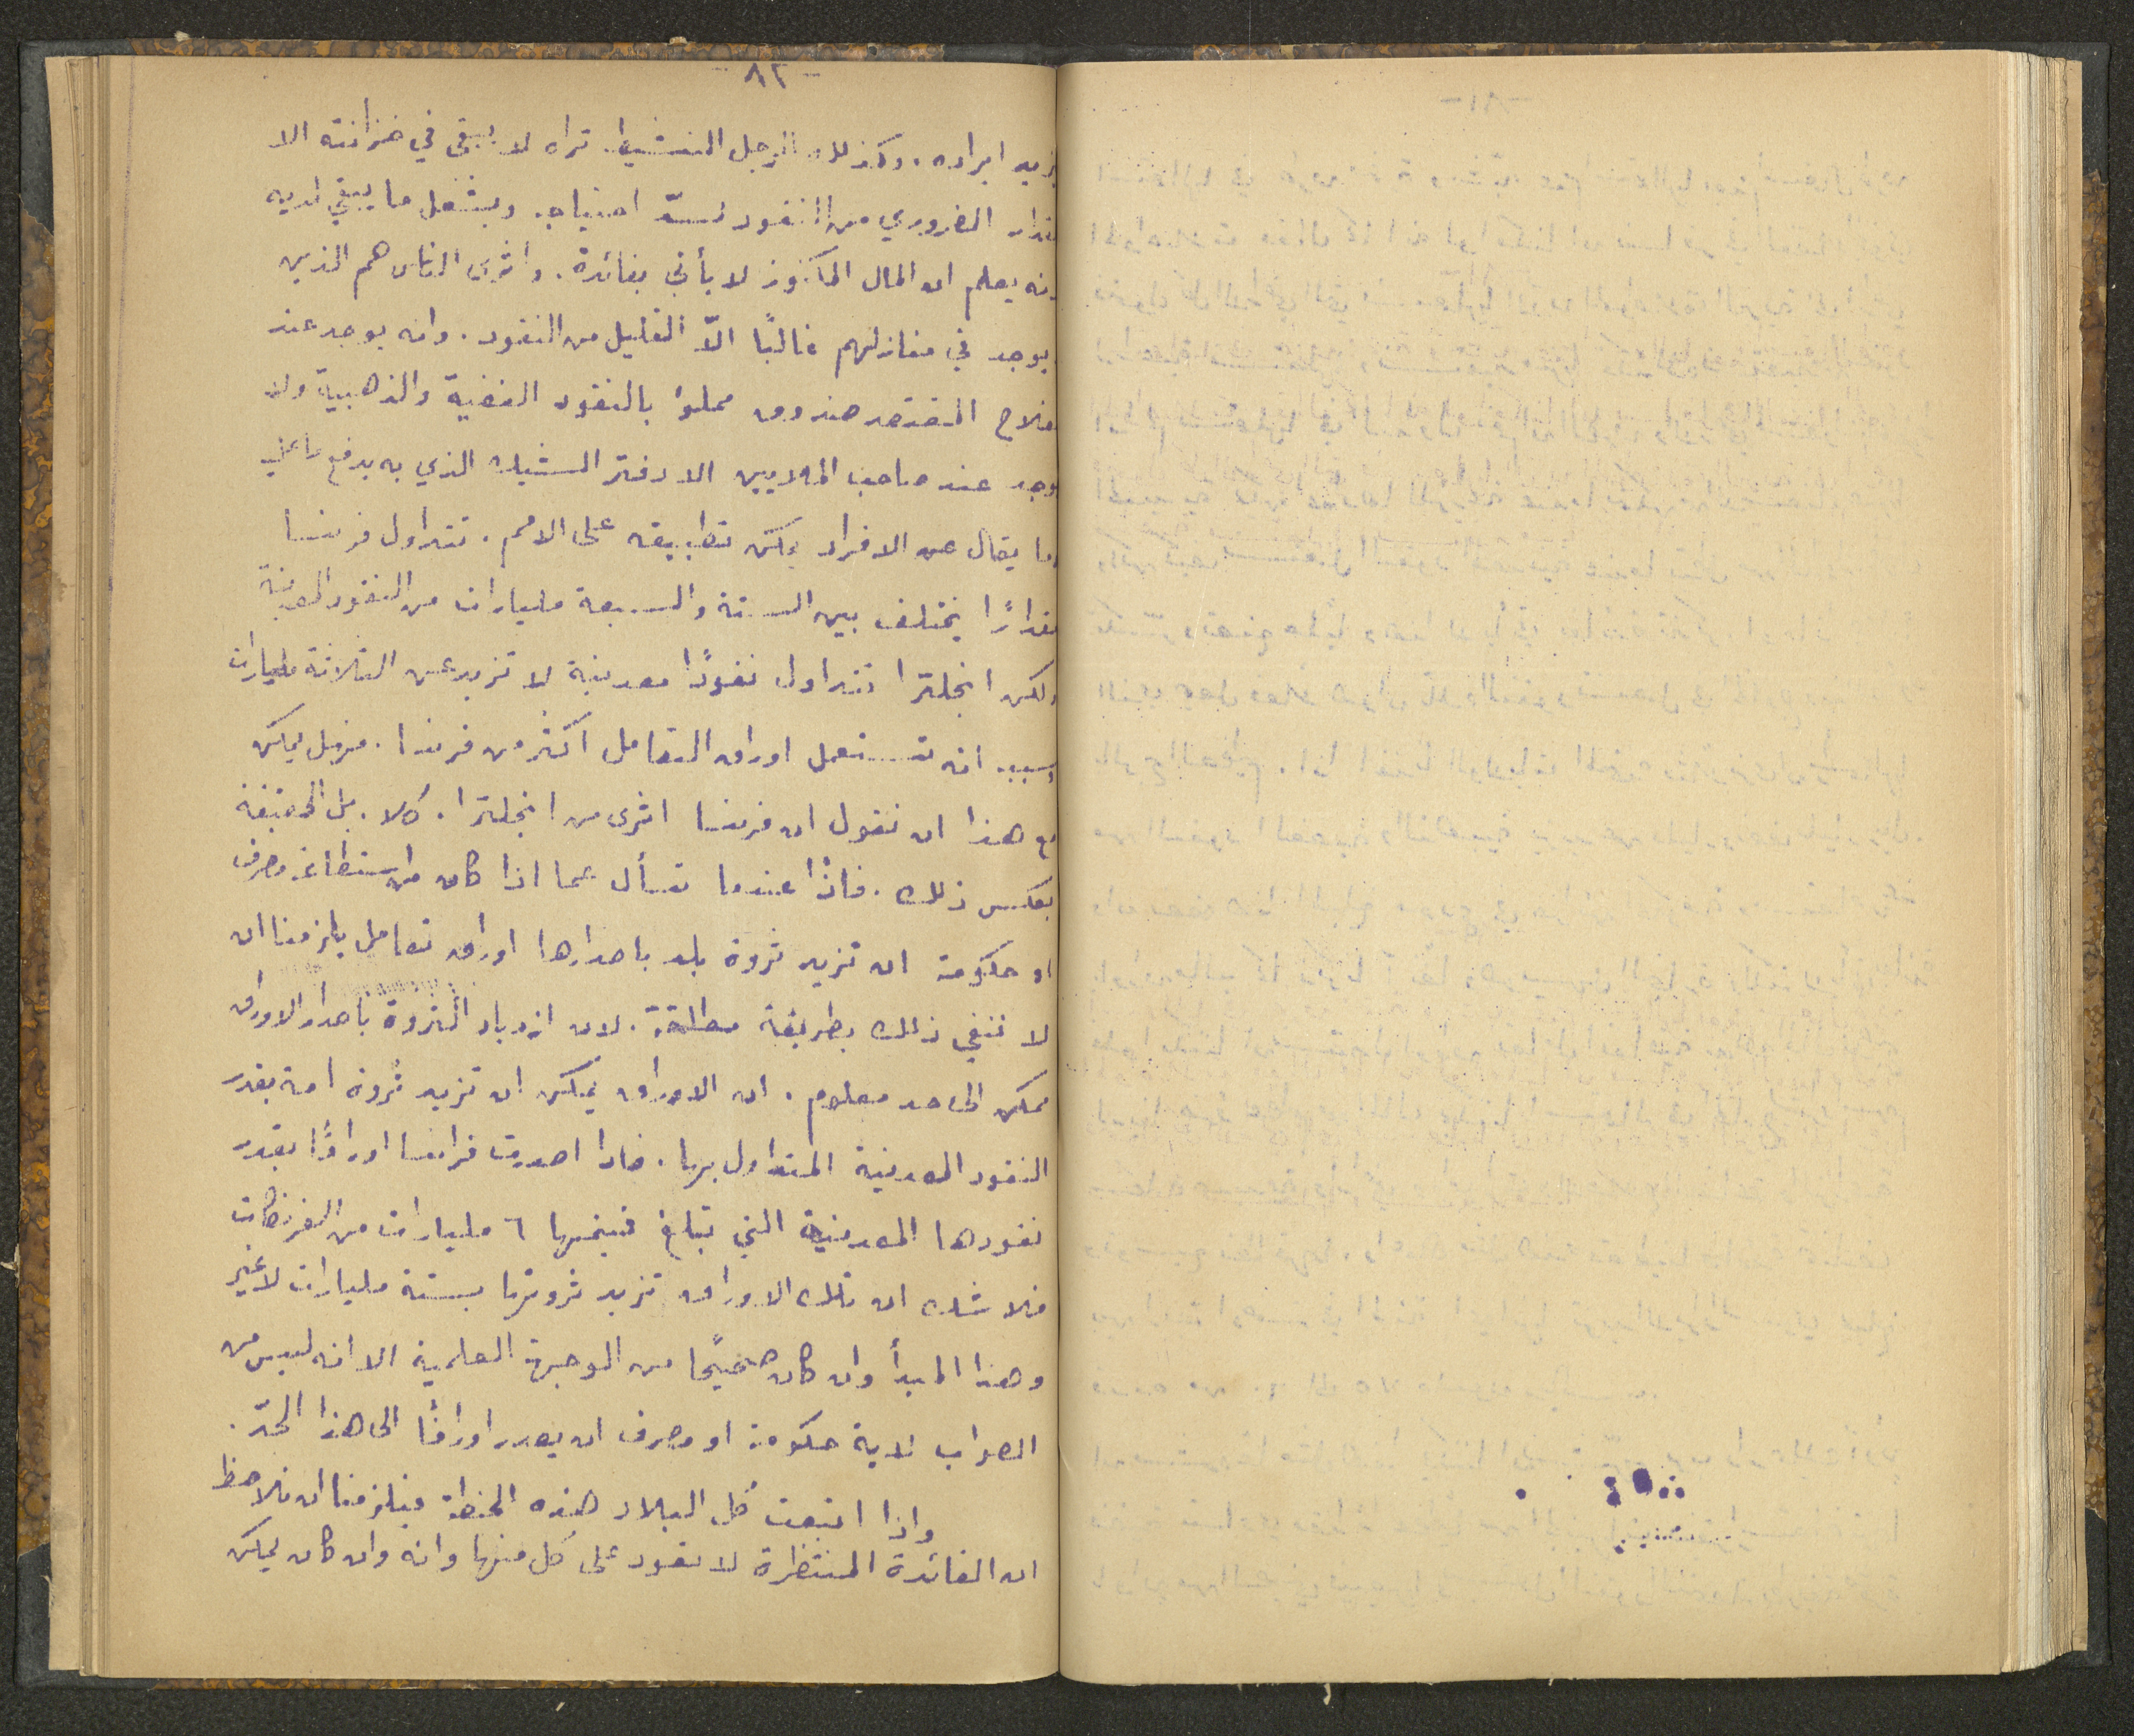 - ٨٢ -
يزيد ايراده. وكذلك الرجل النشيط تراه لا يبقى في خزانته الا
مقدار الضروري من النقود لسدّ احتياجه. ويشغل ما يبقي لديه
لانه يعلم ان المال المكنوز لا يأتي بفائدة. واثرى الناس هم الذين
يوجد في منازلهم غالبًا الاّ القليل من النقود. وانه يوجد عند
الفلاح المقتصد صندوق مملوا بالنقود الفضية والذهبية ولا
يوجد عند صاحب الملايين الا دفتر الشيك الذي به يدفع ما عليه
وما يقال عن الافراد يمكن تطبيقه على الامم. تتداول فرنسا
مقدارًا يختلف بين الستة والسبعة مليارات من النقود المعدنية
ولكن انجلترا تتداول نقودًا معدنية لا تزيد عن الثلاثة مليارات
وسببه انها تستعمل اوراق التعامل اكثر من فرنسا. فهل يمكن
مع هذا ان نقول ان فرنسا اثرى من انجلترا. كلا. بل الحقيقة
بعكس ذلك. فاذًا عندما نسأل عما اذا كان من استطاعة مصرف
او حكومة ان تزيد ثروة بلد باصدارها اوراق تعامل يلزمنا ان
لا ننفي ذلك بطريقة مطلقة. لان ازدياد الثروة باصدار الاوراق
ممكن الى حد معلوم. ان الاوراق يمكن ان تزيد ثروة امة بقدر
النقود المعدنية المتداول بها. فاذا اصدرت فرانسا اوراقًا بقدر
نقودها المعدنية التي تبلغ قيمتها ٦ مليارات من الفرنكات
فلا شك ان تلك الاوراق تزيد ثروتها بستة مليارات لا غير
وهذا المبدأ وان كان صحيحًا من الوجهة العلمية الا انه ليس من
الصواب لاية حكومة او مصرف ان يصدر اوراقًا الى هذا الحدّ.
واذا اتبعت كل البلاد هذه الخطة فيلزمنا ان نلاحظ
ان الفائدة المنتظرة لا تعود على كل منها وانه وان كان يمكن